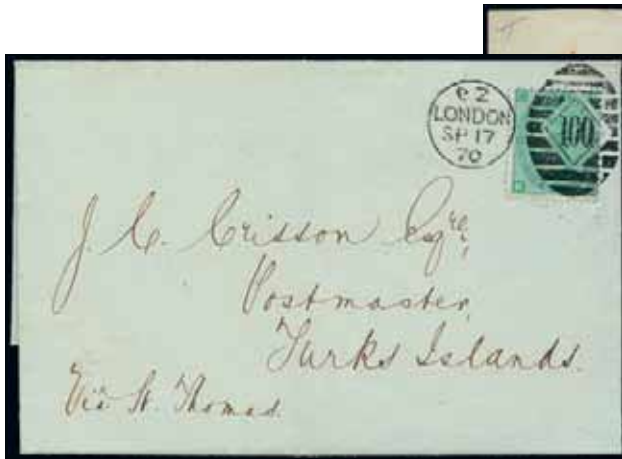 e2
LONDON
SP 17
70
100
J. C. Crisson Esqre,
Postmaster,
Turks Islands.
Via St. Thomas.